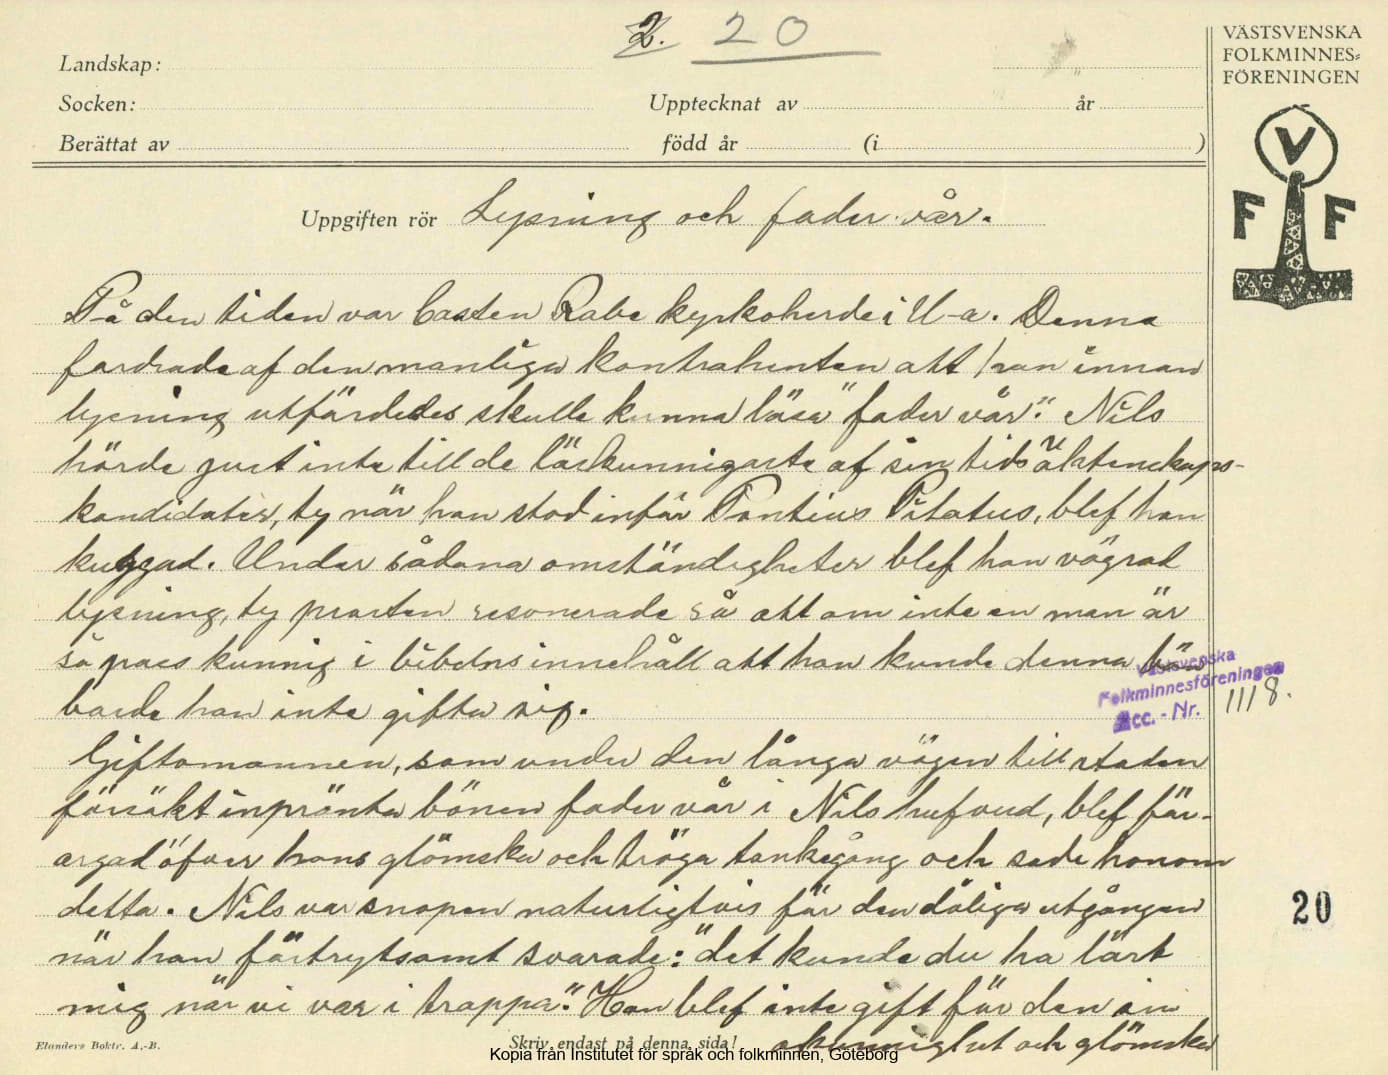 2. 20
VÄSTSVENSKA
FOLKMINNES=
FÖRENINGEN
Landskap:
Socken:
Upptecknat av år
Berättat av född år (i )
V
F F
Uppgiften rör Lysning och fader vår.
På den tiden var Casten Rabe kyrkoherde i U-a. Denna
fordrade af den manliga kontrahenten att han innan
lysning utfärdedes skulle kunna läsa "fader vår". Nils
hörde just inte till de läskunnigaste af sin tids äktenskaps-
kandidater, ty när han stod inför Pontius Pilatus, blef han
kuggad. Under sådana omständigheter blef han vägrad
lysning, ty prosten resonerade så att om inte en man är
så pass kunnig i bibelns innehåll att han kunde denna bön
borde han inte gifta sig.
Västsvenska
Folkminnesföreningen
Acc.-Nr. 1118.
Giftomannen, som under den långa vägen till staden
försökt inprönta bönen fader vår i Nils hufvud, blef för-
argad öfver hans glömska och tröga tankegång och sade honom
detta. Nils var snopen naturligtvis för den dåliga utgången
när han förtrytsamt svarade: "det kunde du ha lärt
mig när vi var i trappa". Han blef inte gift för den sin
okunnighet och glömska
20
Elanders Boktr. A.-B.
Skriv endast på denna sida!
Kopia från Institutet för språk och folkminnen, Göteborg